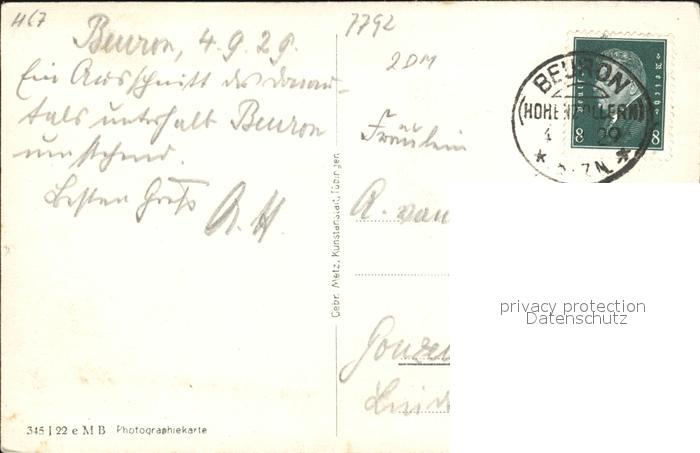 467
7792
2 DM
Beuron, 4.9.29.
Ein Ausschnitt des Donau-
tals unterhalb Beuron
umstehend.
Besten Gruß A. H.
Fräulein
A. van
Gonzen
Lind
BEURON
(HOHENZOLLERN)
4 29
ZN.
Deutsches Reich
8 8
Gebr. Metz, Kunstanstalt, Tübingen
345 I 22 e M B Photographiekarte
privacy protection
Datenschutz